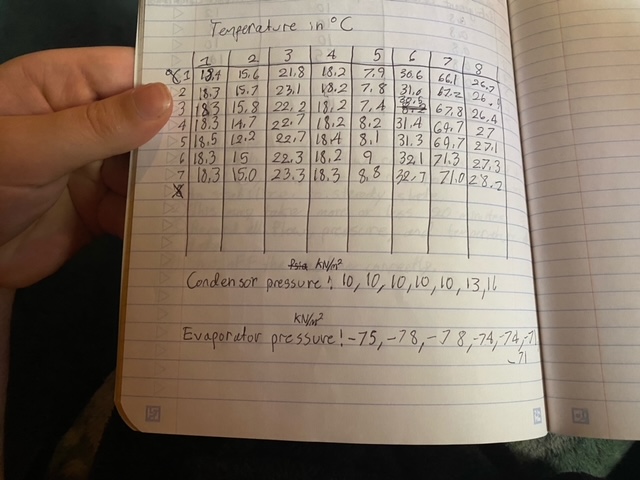 Temperature in °C
1 2 3 4 5 6 7 8
°C 1 18.4 15.6 21.8 18.2 7.9 30.6 66.1 26.7
2 18.3 15.7 23.1 18.2 7.8 31.0 67.2 26.
3 18.3 15.8 22.2 18.2 7.4 67.8 26.4
4 18.3 14.7 22.7 18.2 8.2 31.4 69.7 27
5 18.5 12.2 22.7 18.4 8.1 31.3 69.7 27.1
6 18.3 15 22.3 18.2 9 32.1 71.3 27.3
7 18.3 15.0 23.3 18.3 8.8 32.7 71.0 28.2
psia KN/m²
Condensor pressure: 10, 10, 10, 10, 10, 13, 11
KN/m²
Evaporator pressure: -75, -78, -78, -74, -74, -71
-71